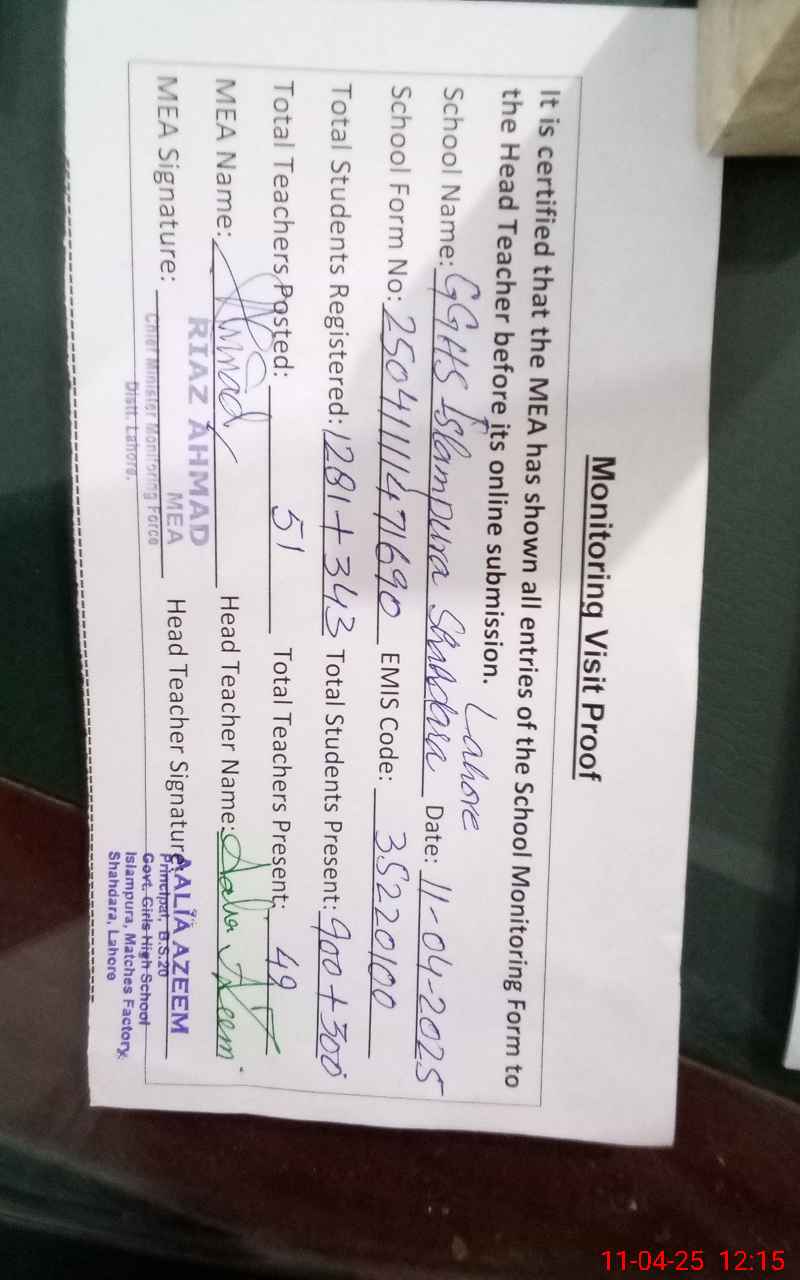 Monitoring Visit Proof
It is certified that the MEA has shown all entries of the School Monitoring Form to
the Head Teacher before its online submission.
Lahore
School Name: GGHS Islampura Shahdara Date: 11-04-2025
School Form No: 250411111471690 EMIS Code: 35220100
Total Students Registered: 1281+343 Total Students Present: 900+300
Total Teachers Posted: 51 Total Teachers Present: 49
MEA Name: Head Teacher Name: Aalia Azeem
RIAZ AHMAD
MEA Signature: MEA Head Teacher Signature:
Chief Minister Monitoring Force
Distt. Lahore.
AALIA AZEEM
Principal, B.S.20
Govt. Girls High School
Islampura, Matches Factory,
Shahdara, Lahore
11-04-25 12:15